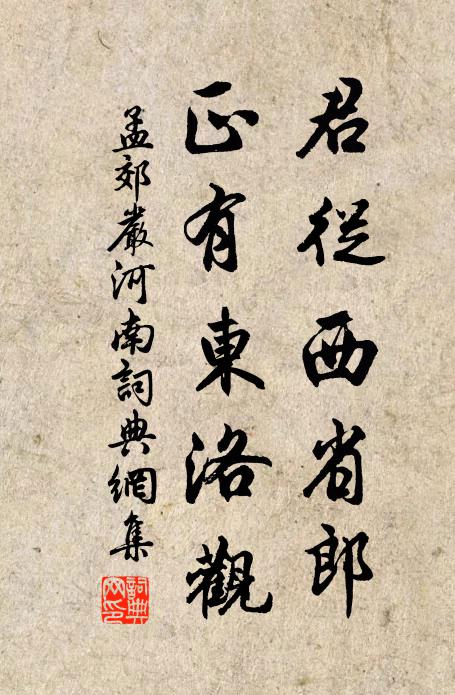 君從西省郎
正有東洛觀
孟郊嚴河南詞典網集
詞典網印